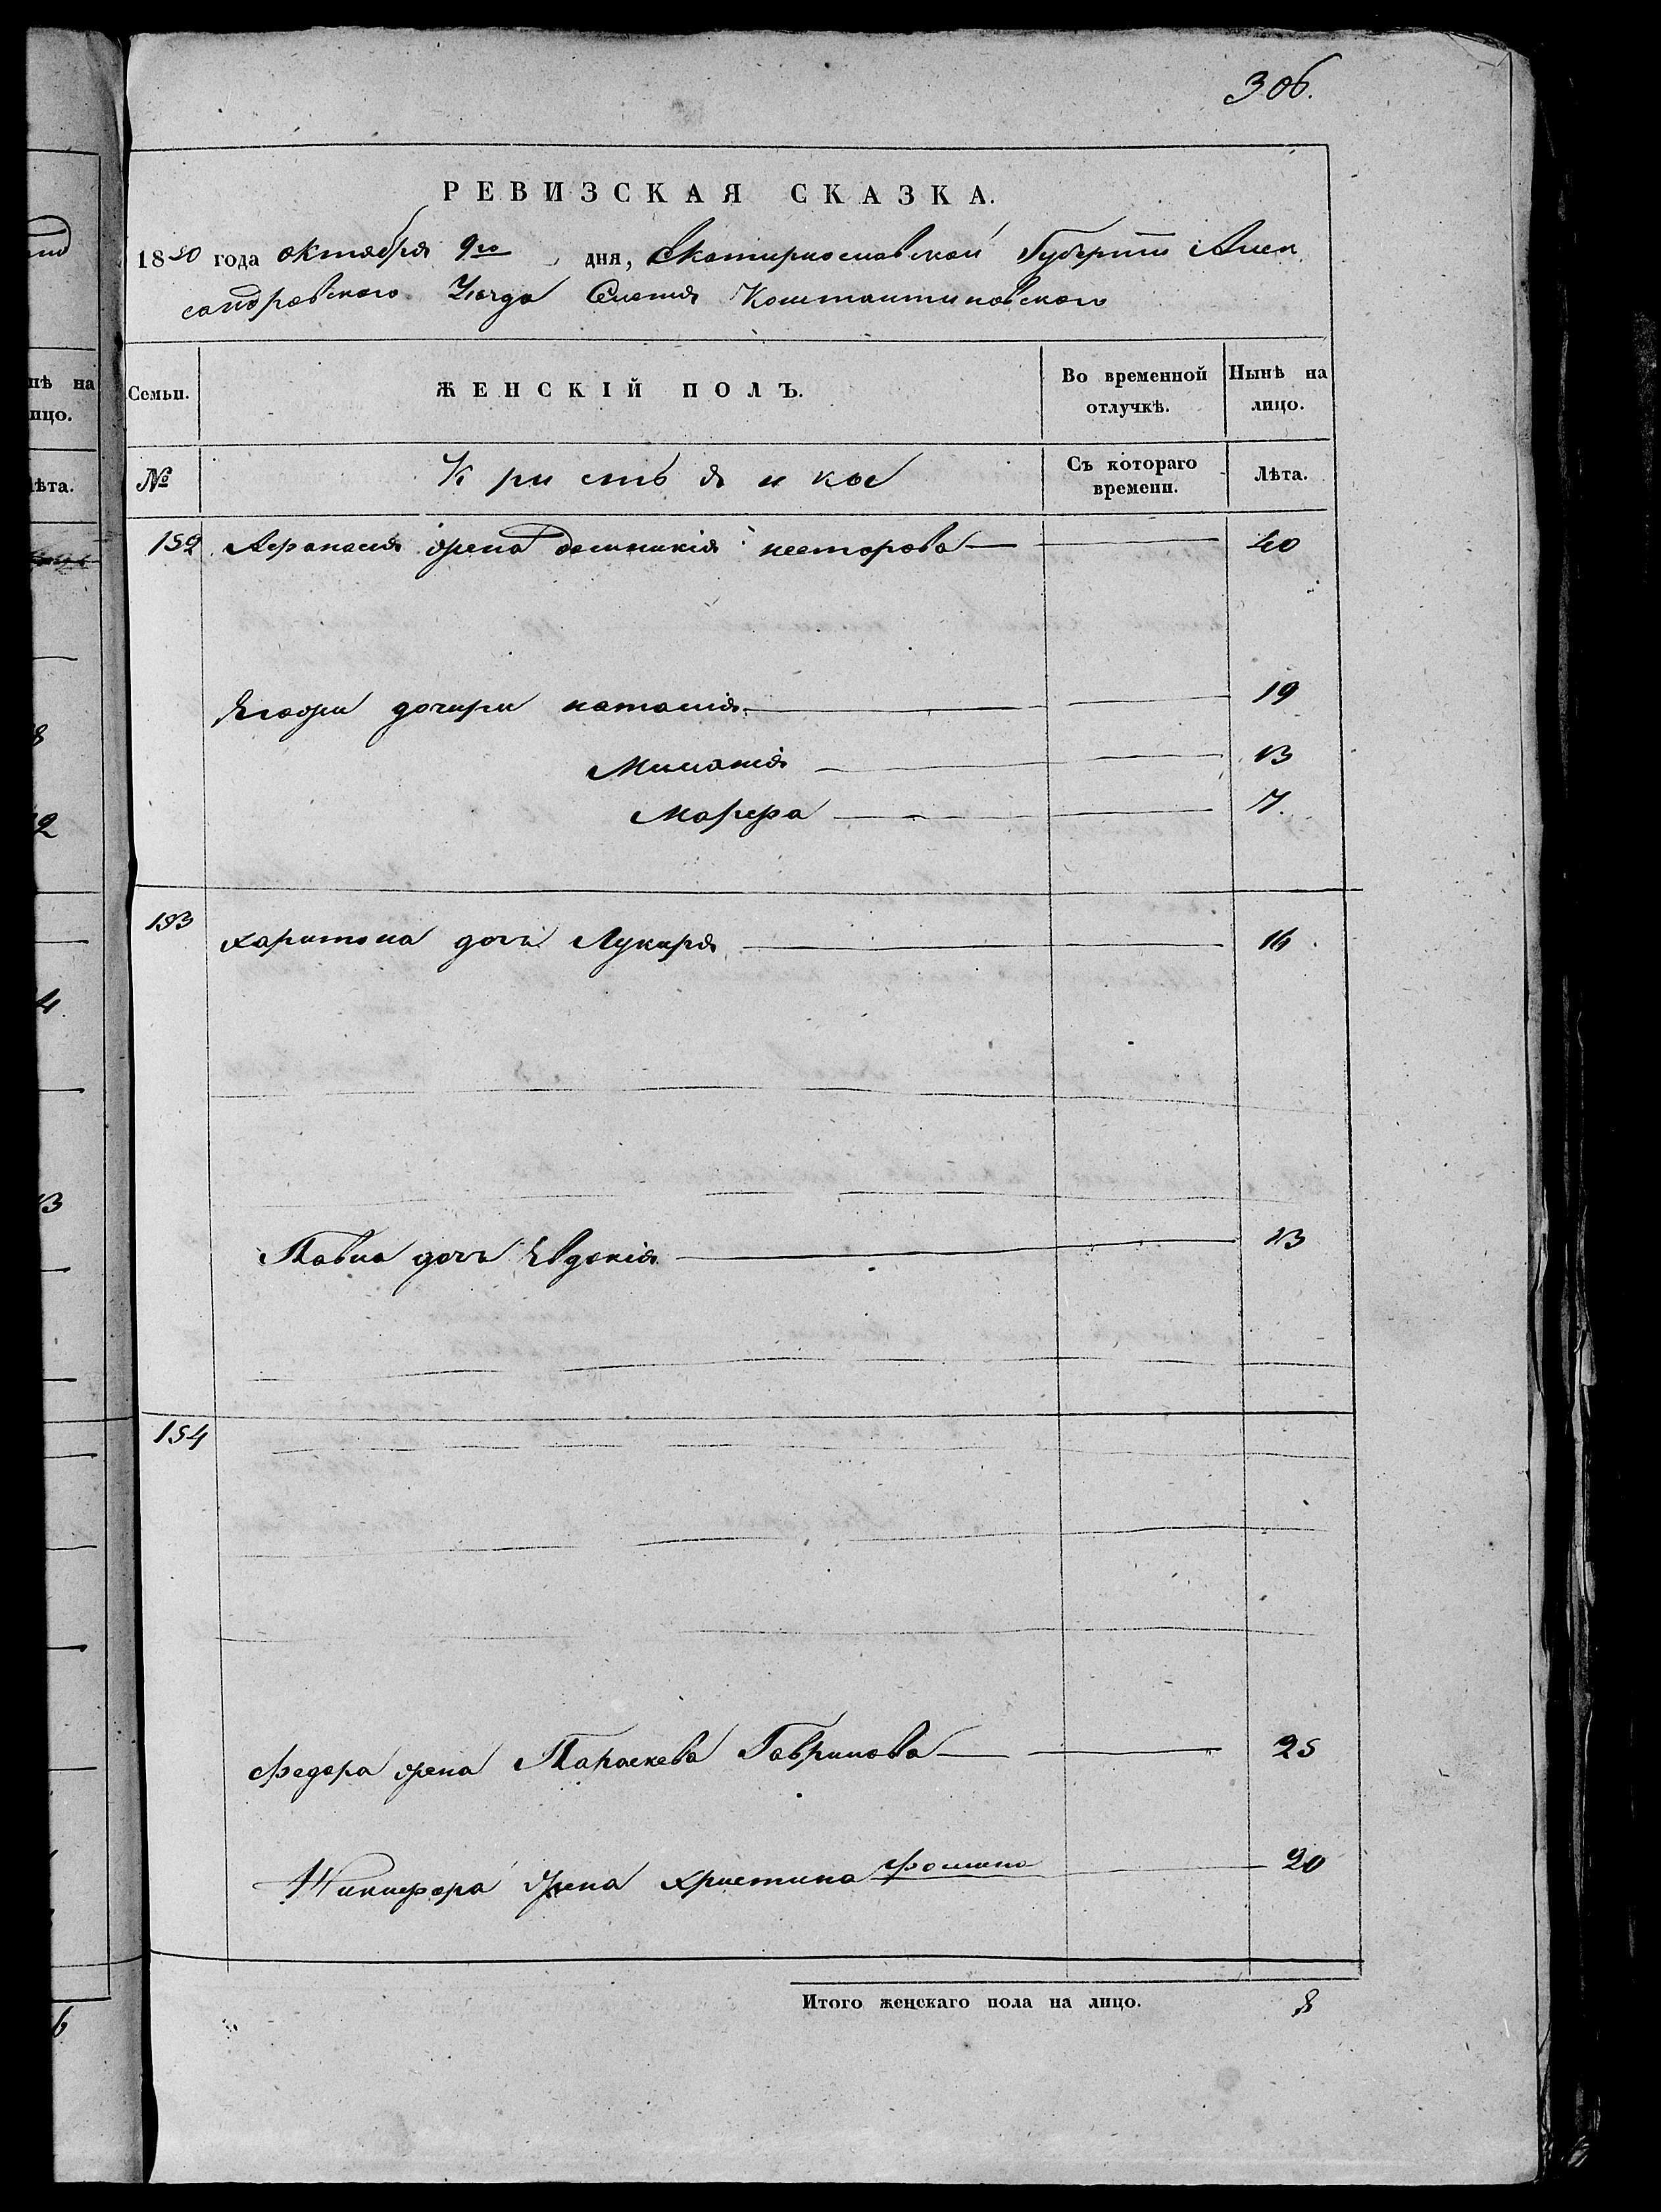 306.
РЕВИЗСКАЯ СКАЗКА.
1850 года октября 9го дня, Екатиринославской Губернии Алек
сандровского Уезда Селения Константиновского
Семьи. ЖЕНСКІЙ ПОЛЪ. Во временной отлучкѣ. Нынѣ на лицо.
№ Кристьянки Съ котораго времени. Лѣта.
152 Афанасия жена домникия несторова — — 40
Его дочири наталия — — 19
Милания — — 13
Марфа — — 7.
153 харитона дочь Лукиря — — 16
Павла дочь Евдокия — — 13
154
Федора жена Параскева Гаврилова — — 25
Никифора жена христина фомина — 20
Итого женскаго пола на лицо. 8